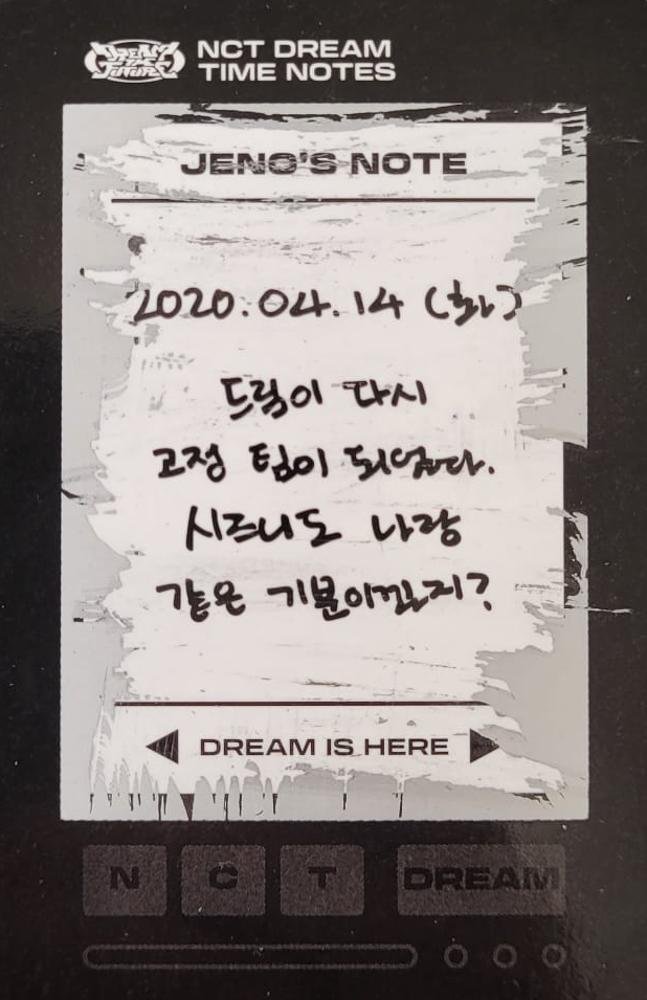 DREAM
FUTURE
NCT DREAM
TIME NOTES
JENO'S NOTE
2020.04.14 (화)
드림이 다시
고정 팀이 되었다.
시즈니도 나랑
같은 기분이겠지?
DREAM IS HERE
N C T DREAM